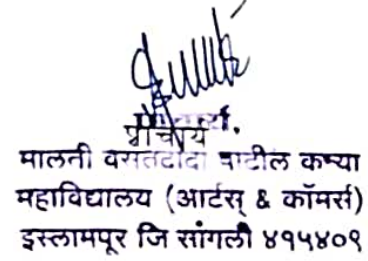 प्राचार्य.
मालनी वसंतदादा पाटील कन्या
महाविद्यालय (आर्टस् & कॉमर्स)
इस्लामपूर जि सांगली ४१५४०९